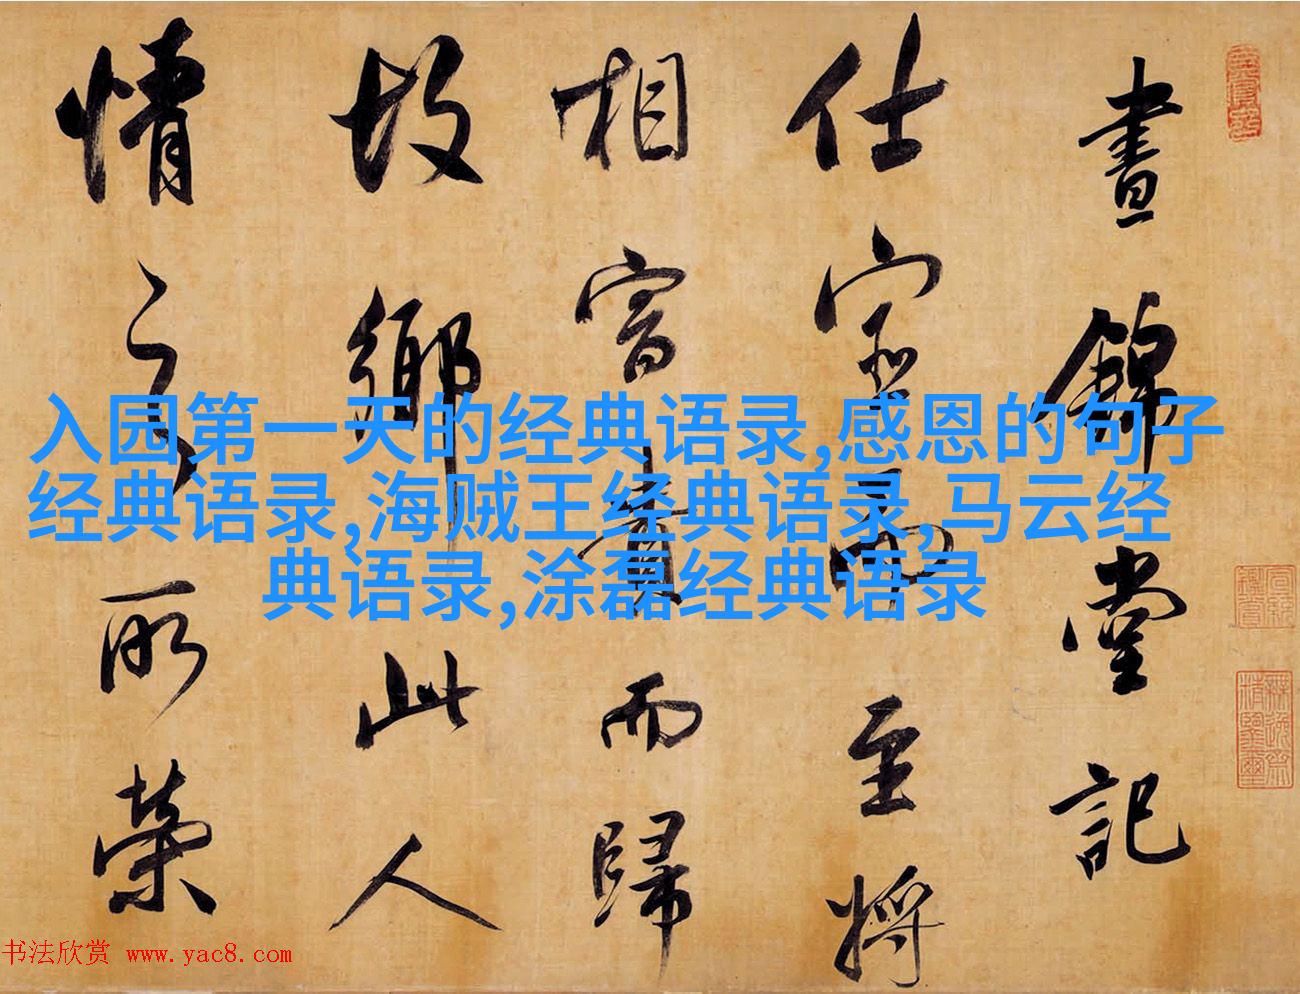 晝錦堂記
仕宦而至將
相富貴而歸
故鄉此人
情之所榮
入园第一天的经典语录,感恩的句子
经典语录,海贼王经典语录,马云经
典语录,涂磊经典语录
书法欣赏 www.yac8.com